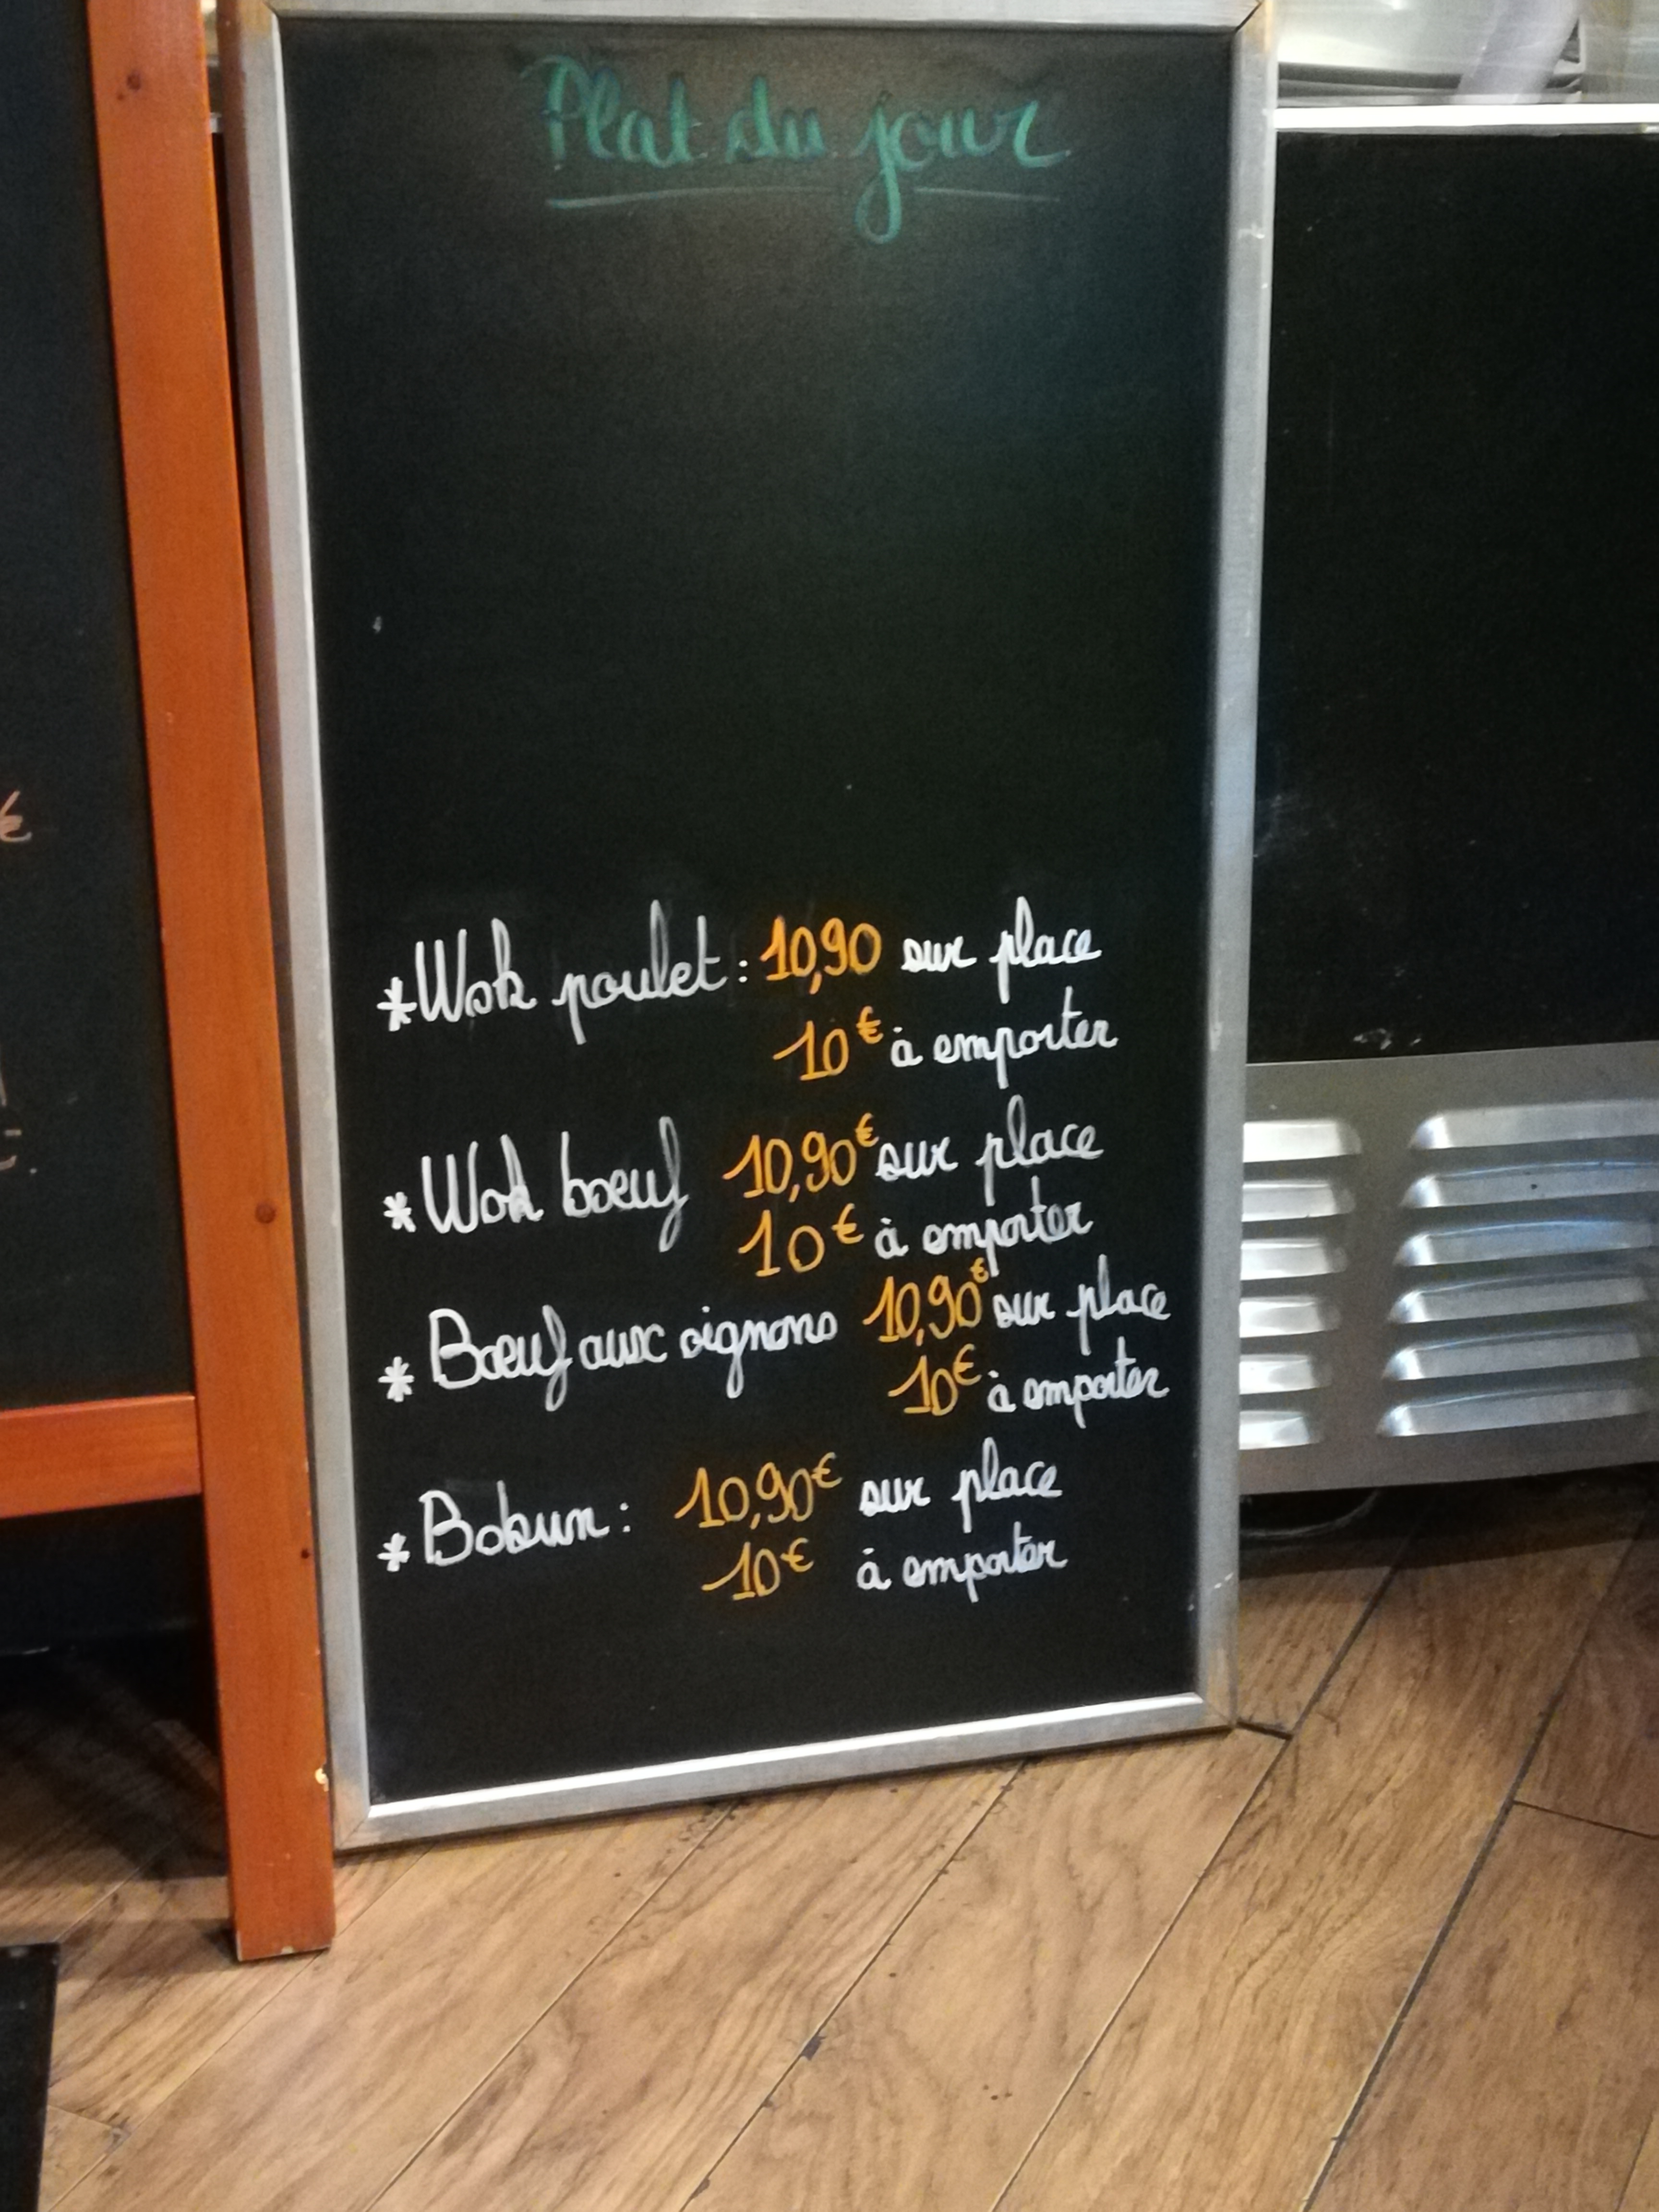 Plat du jour
*Wok poulet : 10,90 sur place
10€ à emporter
*Wok boeuf 10,90€ sur place
10€ à emporter
*Boeuf aux oignons 10,90€ sur place
10€ à emporter
*Bobun : 10,90€ sur place
10€ à emporter
€